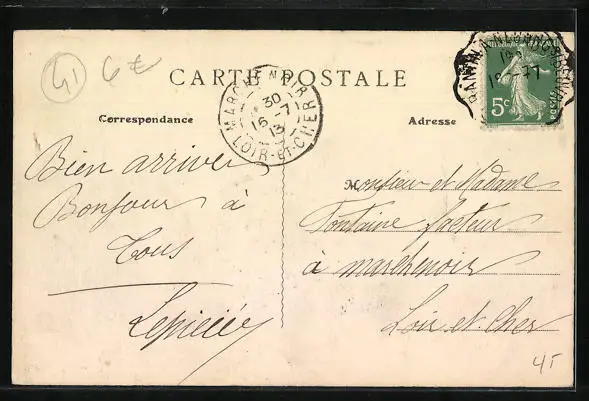 41 6€
CARTE POSTALE
Correspondance
Adresse
MARCHENOIR
30
16-7
13
LOIR-ET-CHER
5c
Bien arrivée
Bonjour à
Tous
M
Monsieur et Madame
Fontaine facteur
à marchenoir
Loir et Cher
45